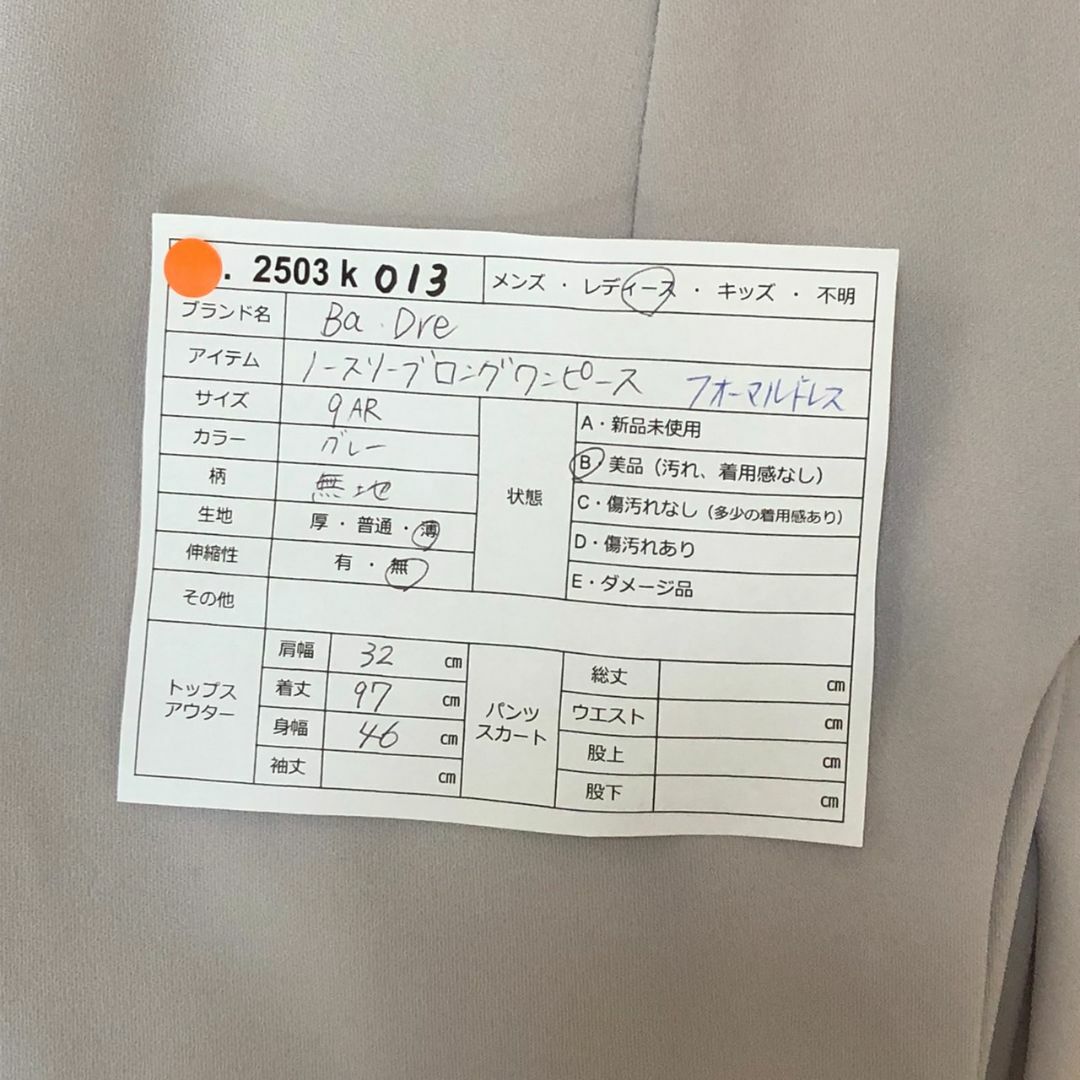 . 2503 k 013 メンズ ・ レディース ・ キッズ ・ 不明
ブランド名 Ba.Dre
アイテム ノースリーブロングワンピース フォーマルドレス
サイズ 9AR
カラー グレー
柄 無地
生地 厚・普通・薄
伸縮性 有・無
状態
A・新品未使用
B・美品（汚れ、着用感なし）
C・傷汚れなし（多少の着用感あり）
D・傷汚れあり
E・ダメージ品
その他
トップス
アウター
肩幅 32 ㎝
着丈 97 ㎝
身幅 46 ㎝
袖丈 ㎝
パンツ
スカート
総丈 ㎝
ウエスト ㎝
股上 ㎝
股下 ㎝